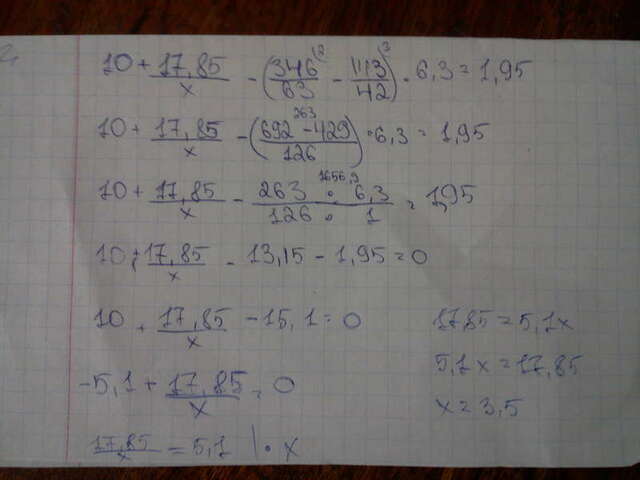 10 + 17,85/x - (346/63 - 113/42) · 6,3 = 1,95
10 + 17,85/x - (692 - 429/126) · 6,3 = 1,95
10 + 17,85/x - 263 · 6,3/126 · 1 = 1,95
10 + 17,85/x - 13,15 - 1,95 = 0
10 + 17,85/x - 15,1 = 0
-5,1 + 17,85/x = 0
17,85/x = 5,1 | · x
17,85 = 5,1x
5,1x = 17,85
x = 3,5